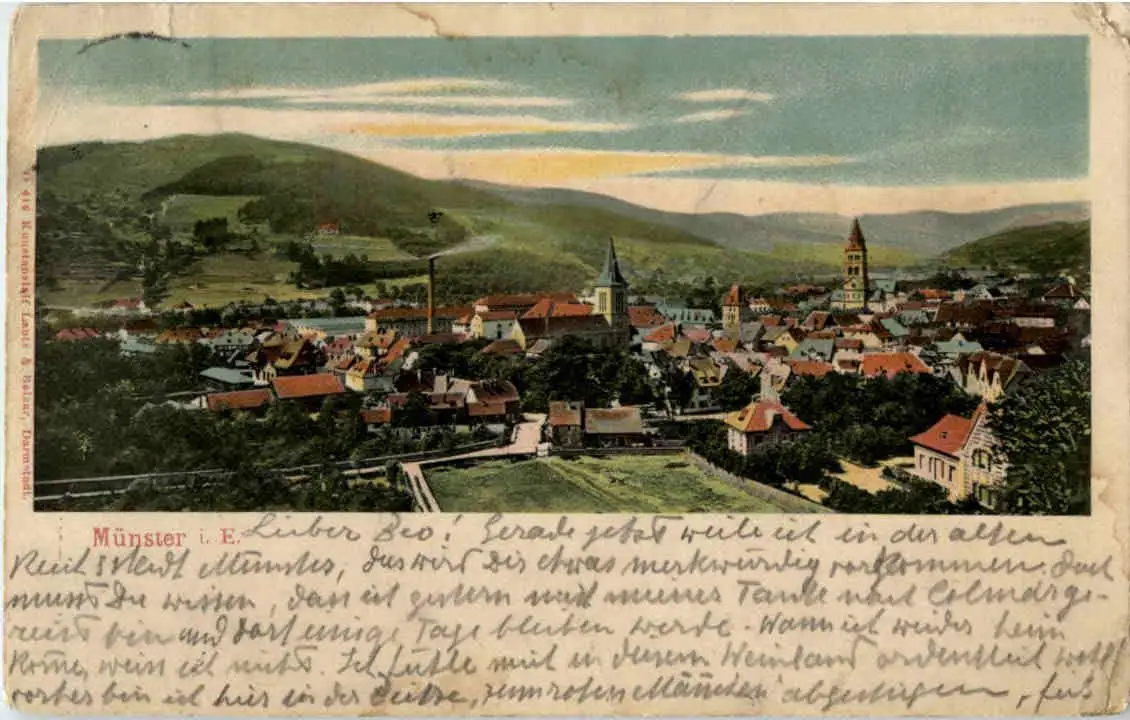 No 416 Kunstanstalt Lautz & Balzar, Darmstadt.
Münster i. E.
Lieber Beo! Gerade jetzt weile ich in der alten
Reichsstadt Münster, das wird Dir etwas merkwürdig vorkommen. Doch
musst Du wissen, dass ich gestern mit meiner Tante nach Colmar ge-
reist bin und dort einige Tage bleiben werde. Wann ich wieder heim
komme, weiss ich nicht. Ich fühle mich in diesem Weinland ordentlich wohl
vorher bin ich hier in der zum roten abgestiegen, für